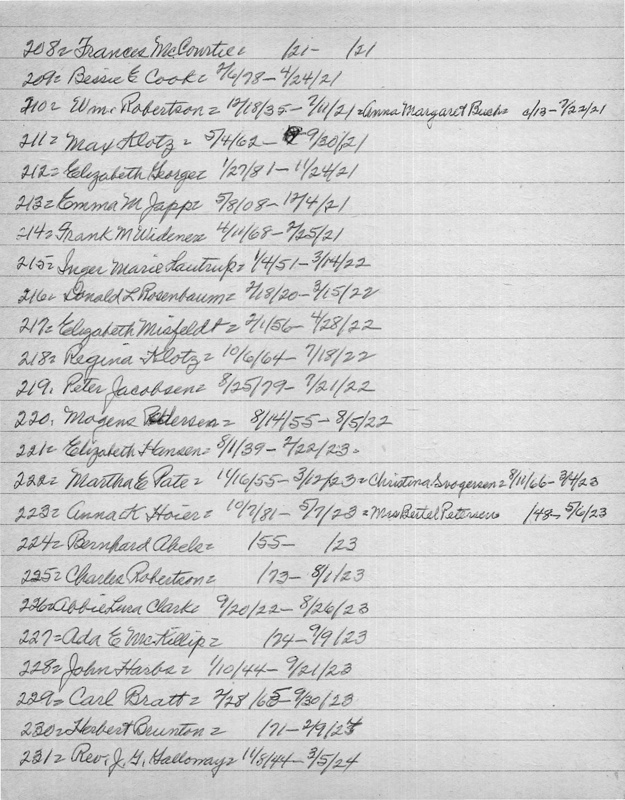 208= Frances McCourtie= /21- /21
209= Bessie E Cook= 2/6/78- 4/24/21
210= Wm. Robertson= 12/18/35- 7/11/21=Anna Margaret Bush= 2/13- 7/22/21
211= Max Klotz= 5/4/62- 9/30/21
212= Elizabeth George= 1/27/81- 11/24/21
213= Emma M Japp= 5/8/08- 12/4/21
214= Frank M Widener= 4/11/68- 2/25/21
215= Inger Marie Lautrup= 1/4/51- 3/14/22
216= Donald L Rosenbaum= 2/18/20- 3/15/22
217= Elizabeth Misfeldt= 2/1/56- 4/28/22
218= Regina Klotz= 10/6/64- 7/18/22
219. Peter Jacobsen= 8/25/79- 7/21/22
220. Mogens Petersen= 8/14/55- 8/5/22
221= Elizabeth Hansen= 8/1/39- 2/22/23=
222= Martha E Pate= 11/16/55- 3/12/23=Christina =8/11/66- 3/4/23
223= Anna K Hoier= 10/7/81- 5/7/23=Mrs Bertel Petersen /48- 5/6/23
224= Bernhard Abels= /55- /23
225= Charles Robertson= /73- 8/1/23
226= Abbie Lura Clark= 9/20/22- 8/26/23
227= Ada E McKillip= /74- 9/9/23
228= John Harbs= 1/10/44- 9/21/23
229= Carl Bratt= 2/28/65- 9/30/23
230= Herbert Brunton= /71- 2/9/24
231= Rev. J. G. Galloway= 11/8/44- 3/5/24